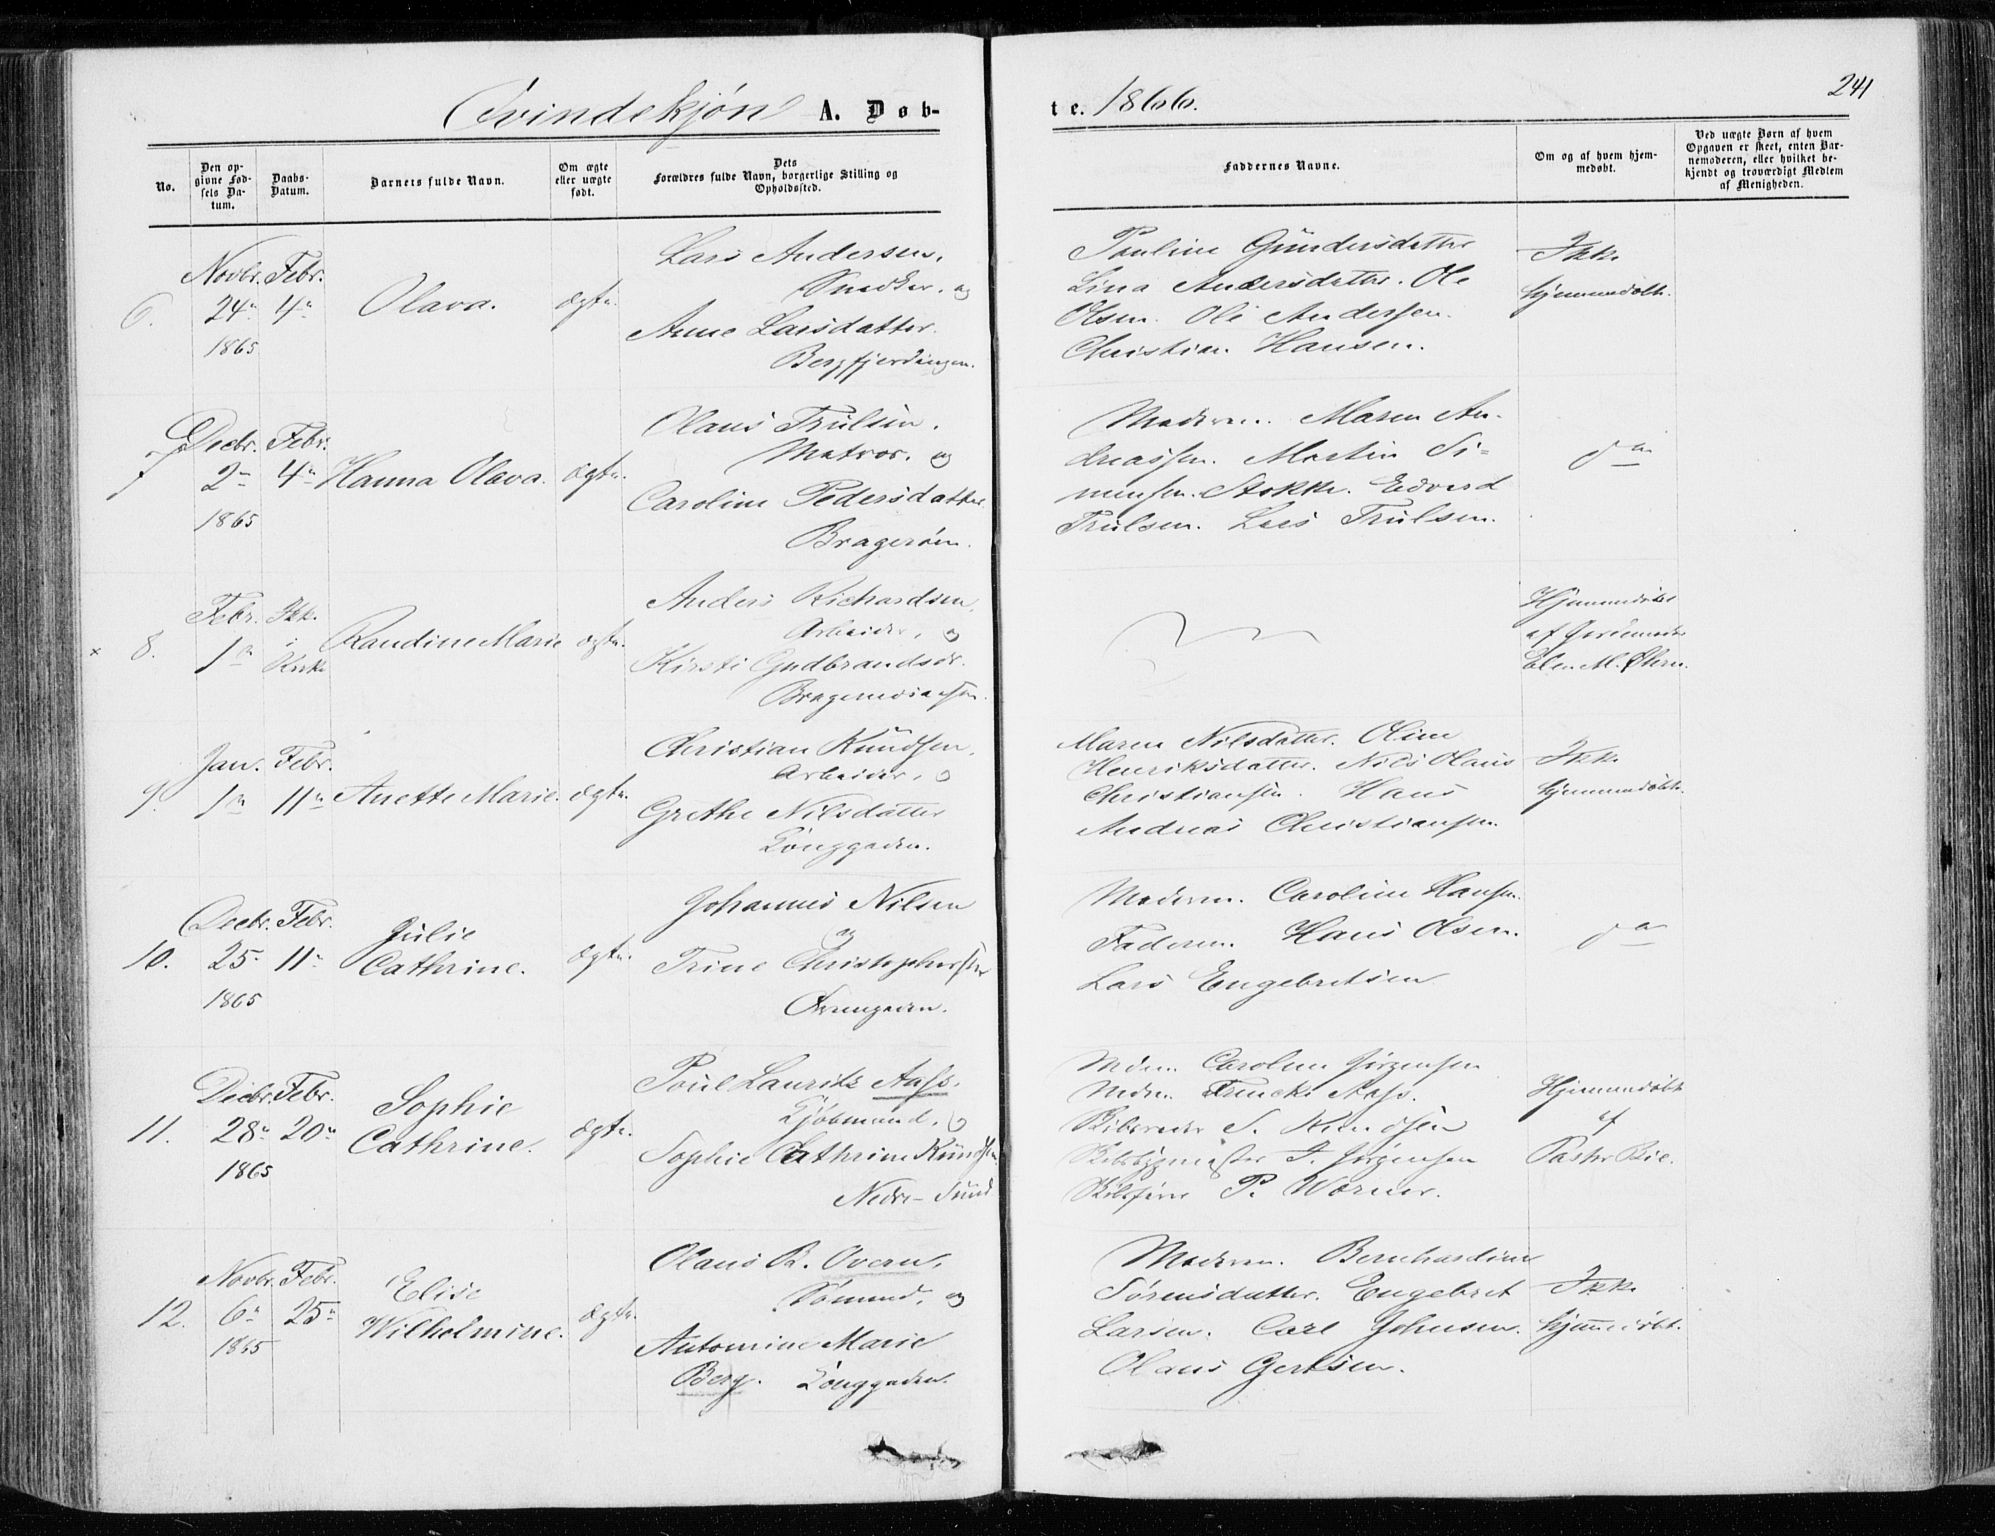 Qvindekjøn A. Døb-
te. 1866.
241
No.
Den op-
givne Fød-
sels Da-
tum.
Daabs-
Datum.
Barnets fulde Navn.
Om ægte
eller uægte
født.
Dets
Forældres fulde Navn, borgerlige Stilling og
Opholdssted.
Faddernes Navne.
Om og af hvem hjem-
medøbt.
Ved uægte Børn af hvem
Opgaven er skeet, enten Bar-
nemoderen, eller hvilket be-
kjendt og troværdigt Medlem
af Menigheden.
6.
Novbr.
24
1865
Febr.
4
Olava.
ægte.
Lars Andersen,
Snedker, og
Anne Larsdatter.
Bergfjerdingen.
Pauline Gundersdatter
Lina Andersdatter. Ole
Olsen. Ole Andersen.
Christian Hansen.
Ikke
hjemmedøbt.
7
Decbr.
2
1865
Febr.
4
Hanna Olava.
ægte.
Olaus Trulsen,
Matros, og
Caroline Pedersdatter
Bragerøen.
Moderen. Maren An-
dreassen. Martin Si-
mensen. Stokke. Edvard
Trulsen. Lars Trulsen.
8.
Febr.
1
Ikke
i
Kirke
Randine Marie
ægte.
Anders Richardsen,
Arbeider, og
Kirsti Gudbrandsdr.
Bragernesaasen.
Hjemmedøbt
af
9.
Jan.
1
Febr.
11
Anette Marie.
ægte.
Christian Knudsen,
Arbeider, og
Grethe Nilsdatter
Longgaden.
Maren Nilsdatter. Oline
Henriksdatter. Nils Olaus
Christiansen. Hans
Andreas Christiansen.
Ikke
hjemmedøbt.
10.
Decbr.
25
1865
Febr.
11
Julie
Cathrine.
ægte.
Johannes Nilsen
og
Trine Christophersdr
Moderen. Caroline Hansen.
Faderen. Hans Olsen.
Lars Engebretsen
11.
Decbr.
28
1865
Febr.
20
Sophie
Cathrine.
ægte.
Poul Lauritz Aass.
Kjøbmand, og
Sophie Cathrine Knudsen.
Nedre-Sund
Mdm. Caroline Jørgensen
Mdm. Aass.
Skibsreder S. Knudsen
Skibsbygmester J. Jørgensen
P. Wærner.
Hjemmedøbt
af
Pastor Bie.
12.
Novbr.
6
1865
Febr.
25
Elise
Wilhelmine.
ægte.
Olaus B. Overn,
Sømand, og
Antomine Marie
Berg. Longgaden.
Moderen. Bernhardine
Sørensdatter. Engebret
Larsen. Carl Johnsen.
Olaus Gertsen.
Ikke
hjemmedøbt.